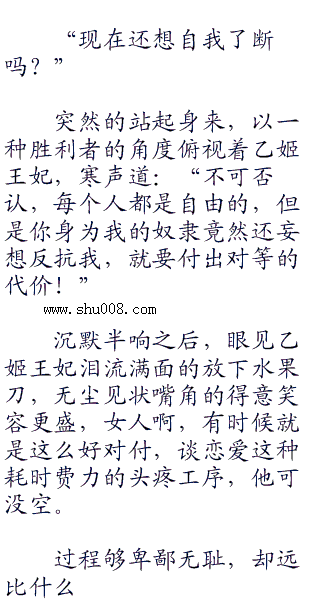 “现在还想自我了断
吗？”
突然的站起身来，以一
种胜利者的角度俯视着乙姬
王妃，寒声道：“不可否
认，每个人都是自由的，但
是你身为我的奴隶竟然还妄
想反抗我，就要付出对等的
代价！”
www.shu008.com
沉默半响之后，眼见乙
姬王妃泪流满面的放下水果
刀，无尘见状嘴角的得意笑
容更盛，女人啊，有时候就
是这么好对付，谈恋爱这种
耗时费力的头疼工序，他可
没空。
过程够卑鄙无耻，却远
比什么